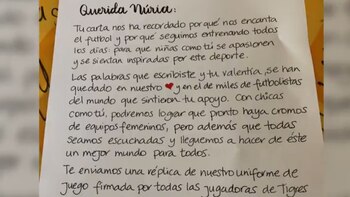 Querida Núria:
Tu carta nos ha recordado por qué nos encanta
el futbol y por qué seguimos entrenando todos
los días: para que niñas como tú se apasionen
y se sientan inspiradas por este deporte.
Las palabras que escribiste y tu valentía, se han
quedado en nuestro ❤ y en el de miles de futbolistas
del mundo que sintieron tu apoyo. Con chicas
como tú, podremos lograr que pronto haya cromos
de equipos femeninos, pero además que todas
seamos escuchadas y lleguemos a hacer de éste
un mejor mundo para todos.
Te enviamos una réplica de nuestro uniforme de
juego firmada por todas las jugadoras de Tigres